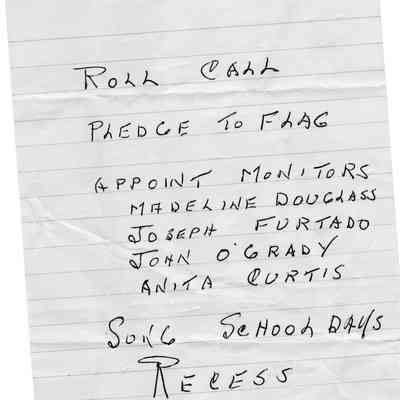 ROLL CALL
PLEDGE TO FLAG
APPOINT MONITORS
MADELINE DOUGLASS
JOSEPH FURTADO
JOHN O'GRADY
ANITA CURTIS
SONG SCHOOL DAYS
RECESS